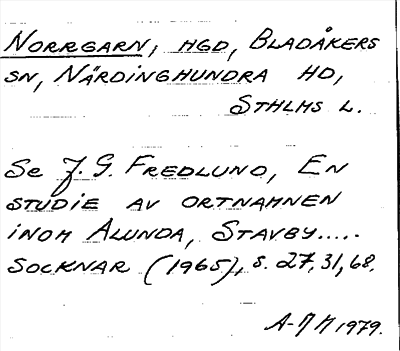 NORRGARN, HGD, BLADÅKERS
SN, NÄRDINGHUNDRA HD,
STHLMS L.
Se J. G. FREDLUND, EN
STUDIE AV ORTNAMNEN
INOM ALUNDA, STAVBY.....
SOCKNAR (1965), s. 27, 31, 68.
A-M M 1979.